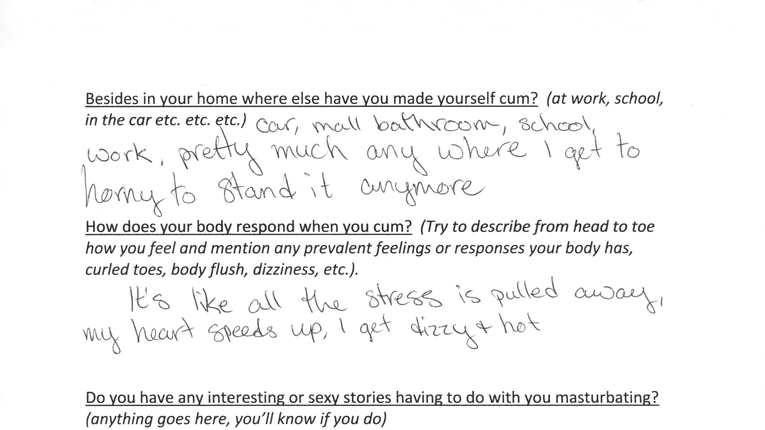 Besides in your home where else have you made yourself cum? (at work, school,
in the car etc. etc. etc.) car, mall bathroom, school,
work, pretty much any where I get to
horny to stand it anymore
How does your body respond when you cum? (Try to describe from head to toe
how you feel and mention any prevalent feelings or responses your body has,
curled toes, body flush, dizziness, etc.).
It's like all the stress is pulled away,
my heart speeds up, I get dizzy & hot
Do you have any interesting or sexy stories having to do with you masturbating?
(anything goes here, you'll know if you do)